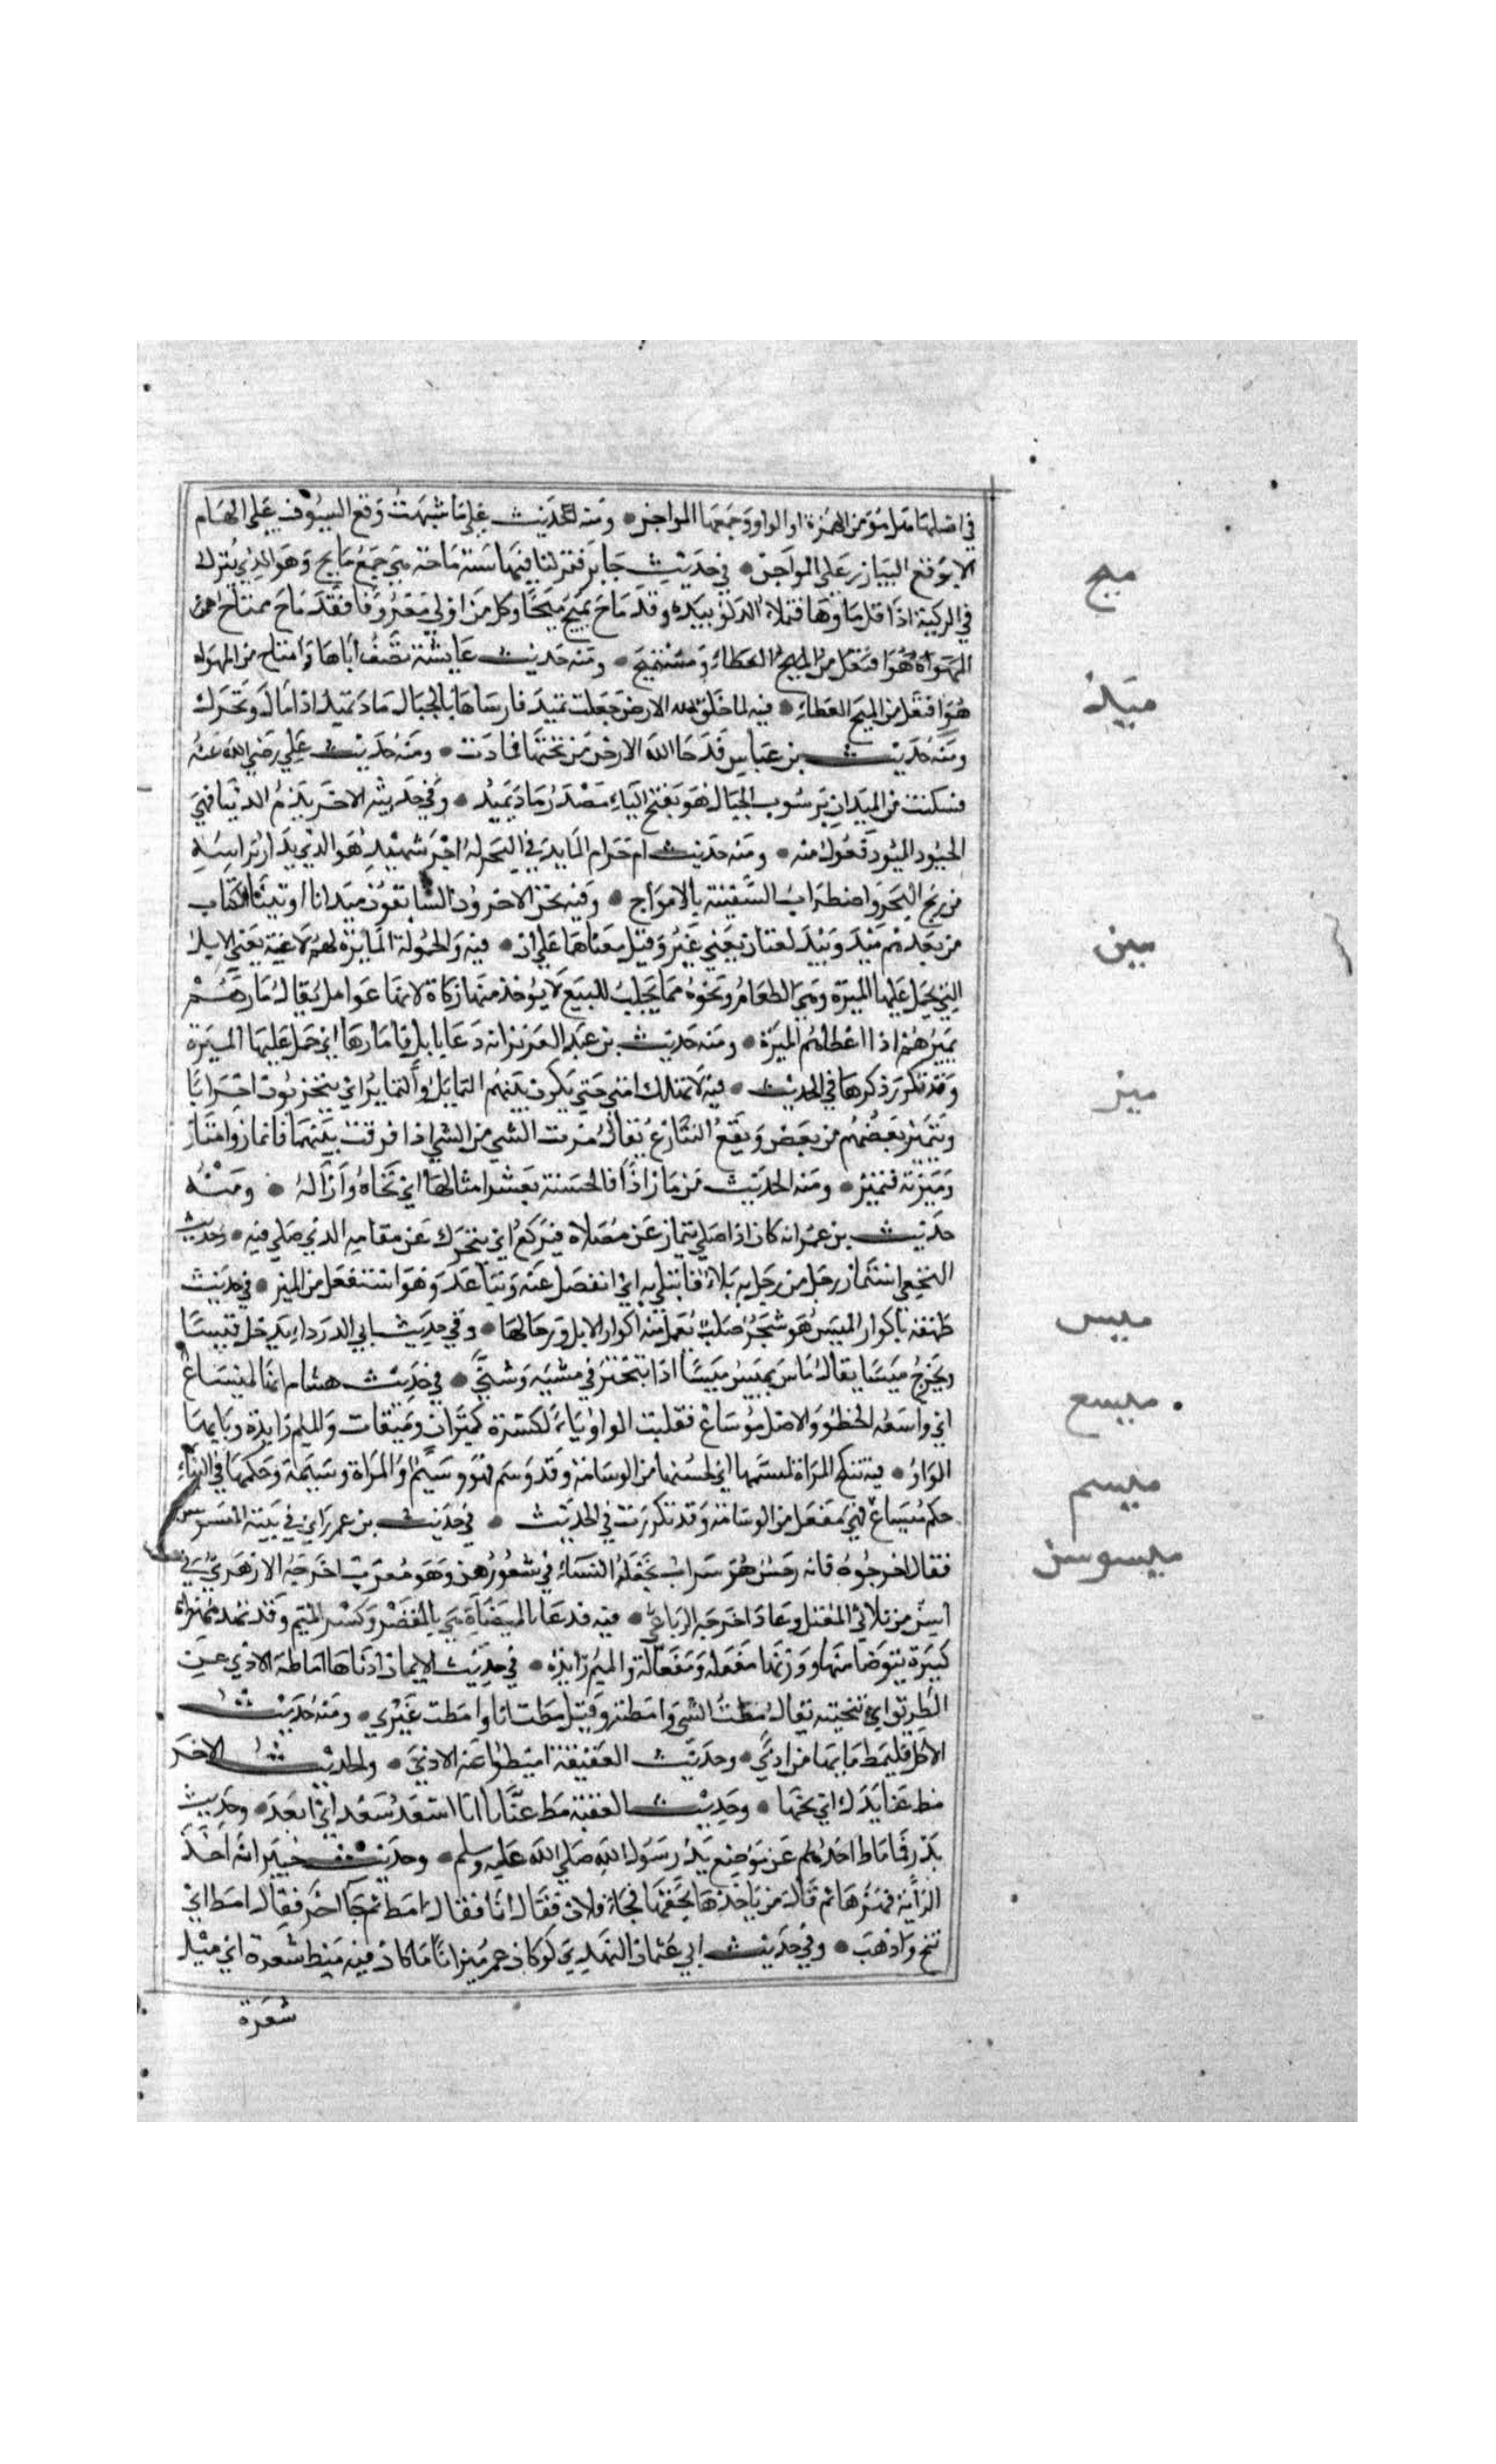 في اصلها هل هو من الهمزة او الواو وجمعها المواجن ومنه الحديث على ما شبهت وقع السيوف على الهام
الا بوقع البيازر على المواجن في حديث جابر فنزلنا فيها ستة ماحة هي جمع مايح وهو الذي ينزل
ميح
في الركية اذا قل ماوها فتملاء الدلو بيده وقد ماح يميح ميحا وكل من اولي معروفا فقد ماح ممتاح من
المهواة هو افتعل من الميح العطاء ومنه حديث عايشة تصف اباها وامتاح من المهواه
هو افتعل من الميح العطاء فيه لما خلق الله الارض جعلت تميد فارساها بالجبال ماد تميد اذا مال وتحرك
ميد
ومنه حديث بن عباس فدحا الله الارض من تحتها فمادت ومنه حديث علي رضي الله عنه
فسكنت من الميدان برسوب الجبال هو بفتح الياء مصدر ماد يميد وفي حديثه الاخر يذم الدنيا فهي
الحيود الميود فعول منه ومنه حديث ام حرام المايد في البحر له اجر شهيد هو الذي يدار براسه
من ريح البحر واضطراب السفينة بالامواج وفيه نحن الاخرون السابقون ميد انا اوتينا الكتاب
من بعدهم ميد وبيد لغتان بمعني غير وقيل معناها على ان فيه والحمولة المايرة لهم لاغية يعني الابل
مير
التي يحمل عليها الميرة وهي الطعام ونحوه مما يجلب للبيع لا يوخذ منها زكاة لانها عوامل يقال مارهم
يميرهم اذا اعطاهم الميرة ومنه حديث بن عبد العزيز انه دعا بابل فامارها اي حمل عليها الميرة
وقد تكرر ذكرها في الحديث فيه لا تهلك امتي حتي يكون بينهم التمايل والتمايز اي يتحزبون احزابا
ميز
ويتميز بعضهم من بعض ويقع التنازع يقال مزت الشي من الشي اذا فرقت بينهما فانماز وامتاز
وميزته فتميز ومنه الحديث من ماز اذا فالحسنة بعشر امثالها اي نحاه وازاله ومنه
حديث بن عمر انه كان اذا صلي ينماز عن مصلاه فيركع اي يتحرك عن مقامه الذي صلي فيه وحديث
النخعي استماز رجل من رجل به بلاء فابتلي به اي انفصل عنه وتباعد وهو استفعل من الميز في حديث
طهفة باكوار الميس هو شجر صلب تعمل منه اكوار الابل ورحالها وفي حديث ابي الدرداء يدخل قيسا
ميس
ويخرج ميسا يقال ماس يميس ميسا اذا تبختر في مشيه وتثني في حديث هشام انها لميساع
ميسع
اي واسعة الخطو والاصل موساع فقلبت الواو ياء لكسرة كميزان وميقات والميم زايدة وبابها
الواو فيه تنكح المراة لميسمها اي لحسنها من الوسامة وقد وسم فهو وسيم والمراة وسيمة وحكمها في البناء
ميسم
حكم ميساع فهي مفعل من الوسامة وقد تكررت في الحديث في حديث بن عمر راي في بيته الميسوسن
فقال اخرجوه فانه رجس هو شراب تجعله النساء في شعورهن وهو معرب اخرجه الازهري في
ميسوسن
اسن من ثلاثي المعتل وعاد اخرجه الرباعي فيه فدعا بالميضاة هي بالقصر وكسر الميم وقد تمد مطهرة
كبيرة يتوضا منها ووزنها مفعلة ومفعالة والميم زايدة في حديث الايمان ادناها اماطة الاذي عن
الطريق اي تنحيته يقال مطت الشي وامطته وقيل مطت انا وامطت غيري ومنه حديث
الاكل فليمط ما بها من اذي وحديث العقيقة اميطوا عنه الاذي والحديث الاخر
مط عنا يدك اي نحها وحديث العقبة مط عنا يا سعد اي ابعد وحديث
بدر فما ماط احدهم عن موضع يد رسول الله صلي الله عليه وسلم وحديث خيبر انه اخذ
الراية فهزها ثم قال من ياخذها بحقها فجاء فلان فقال انا فقال امط ثم جا اخر فقال امط اي
تنح واذهب وفي حديث ابي عثمان النهدي لو كان عمر ميزانا ما كان فيه ميط شعرة اي ميل
شعرة